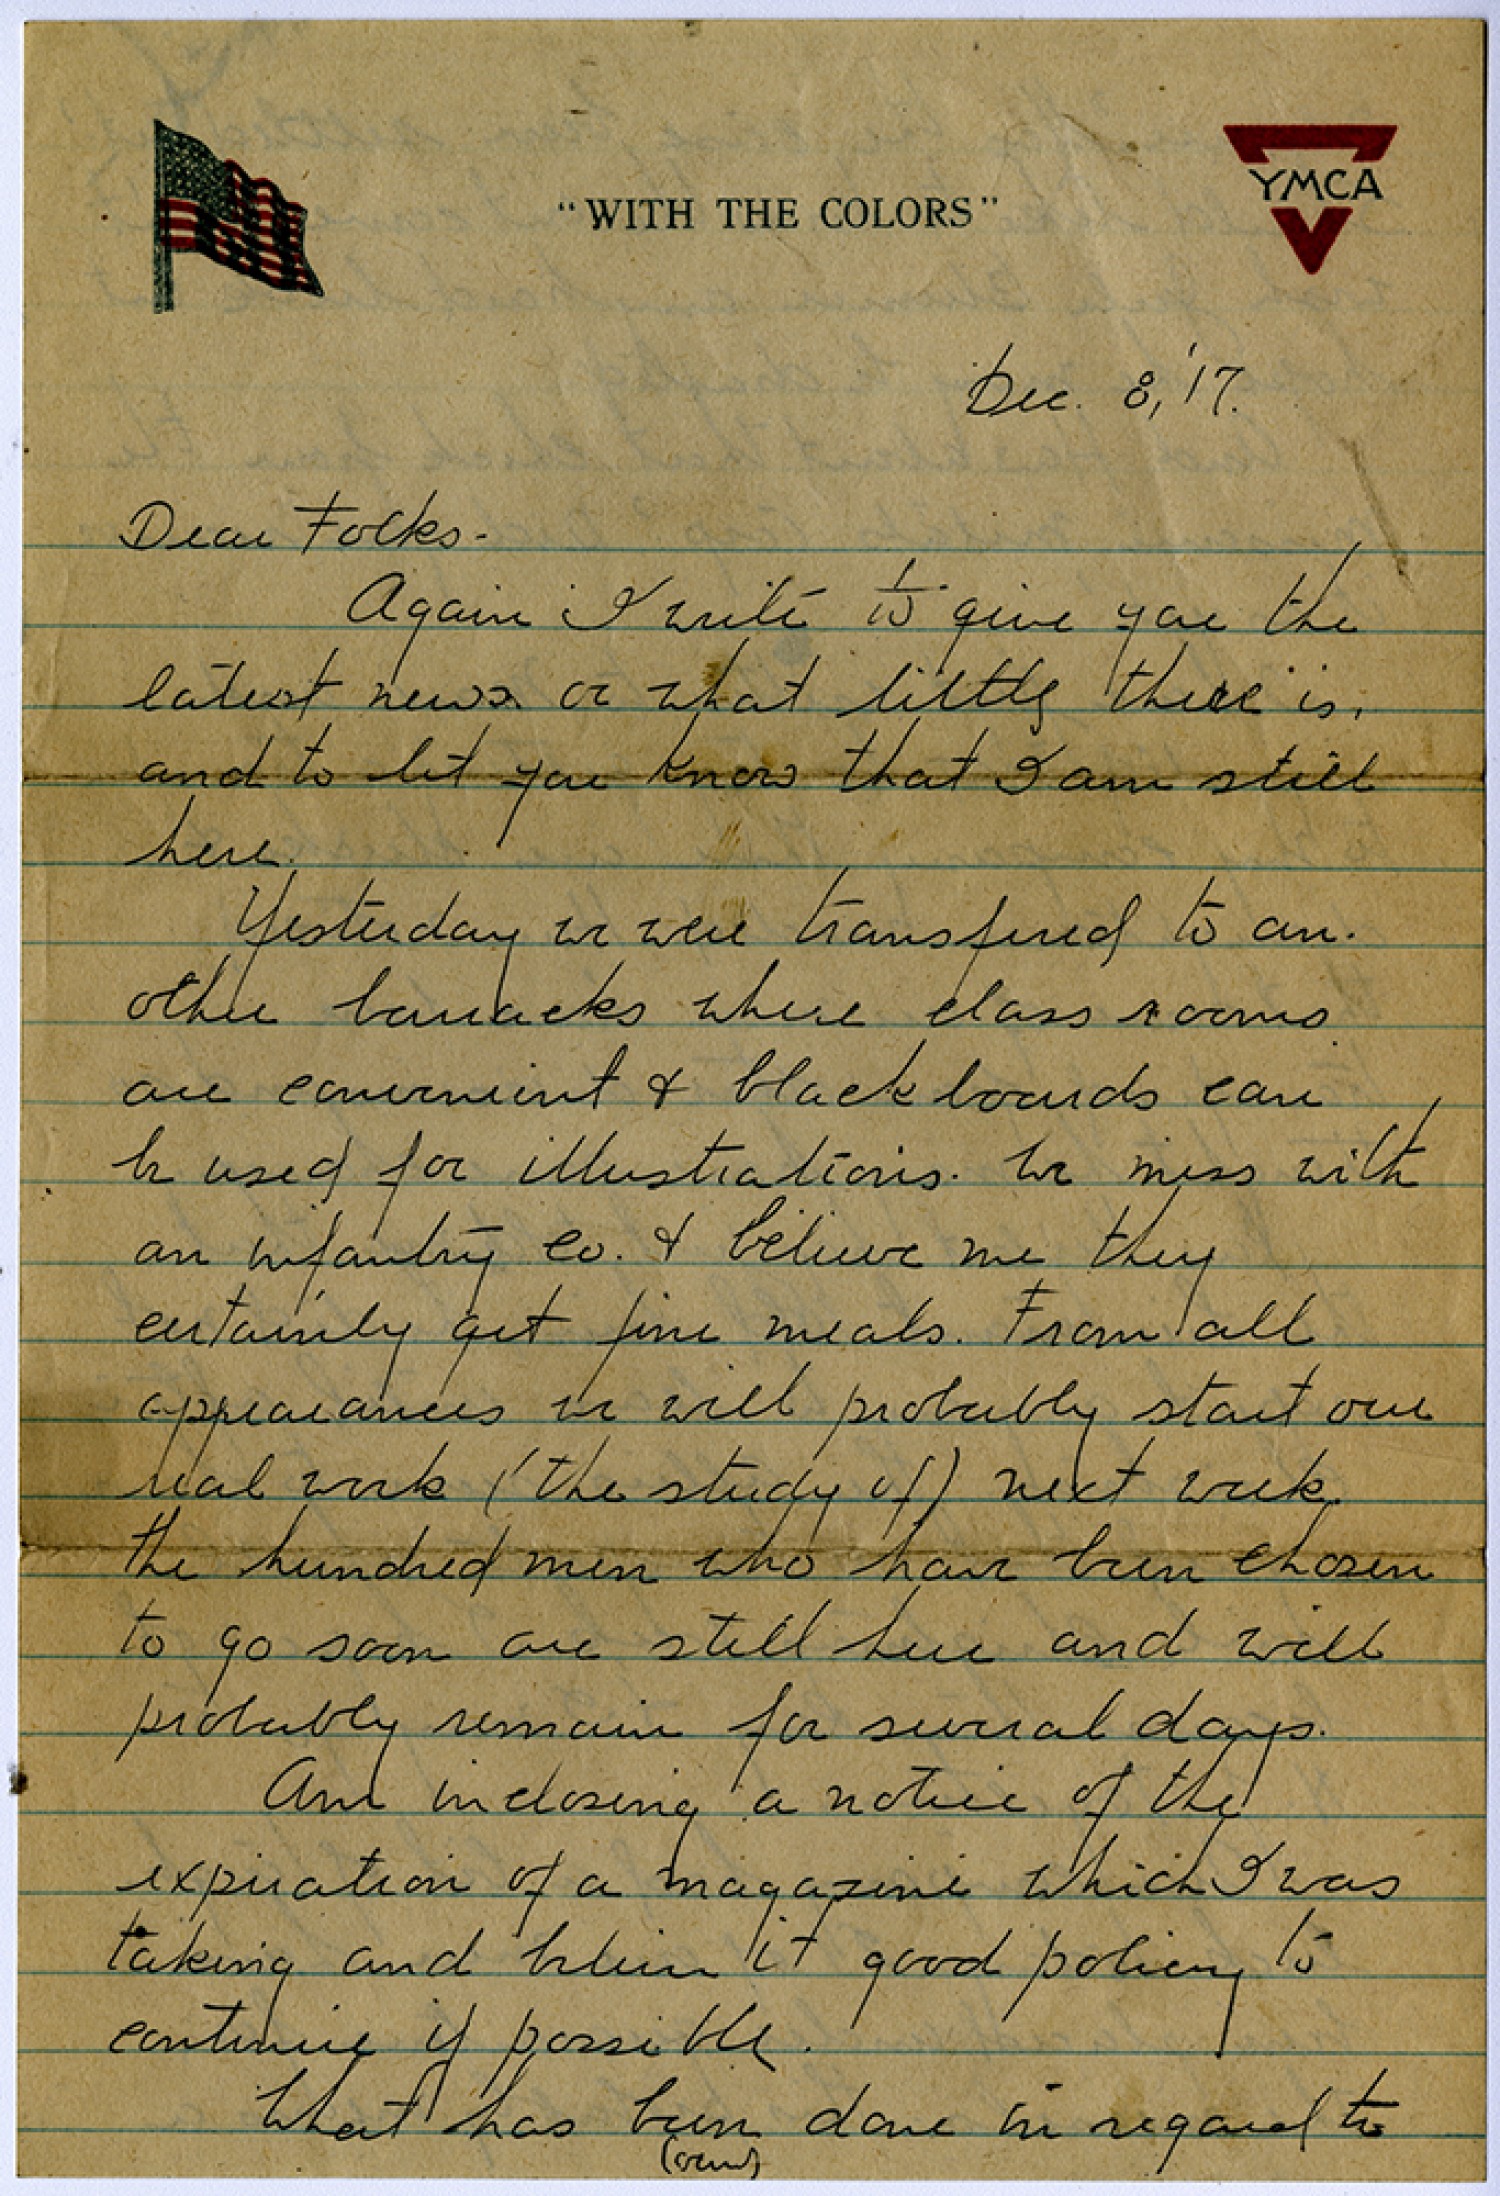 "WITH THE COLORS"
YMCA
Dec. 8, '17.
Dear Folks-
Again I write to give you the
latest news or what little there is,
and to let you know that I am still
here.
Yesterday we were transfered to an-
other barracks where class rooms
are convenient & black boards can
be used for illustrations. We mess with
an infantry Co. & believe me they
certainly get fine meals. From all
appearances we will probably start our
real work (the study of) next week.
The hundred men who have been chosen
to go soon are still here and will
probably remain for several days.
Am inclosing a notice of the
expiration of a magazine which I was
taking and believe it good policy to
continue if possible.
What has been done in regard to
(over)